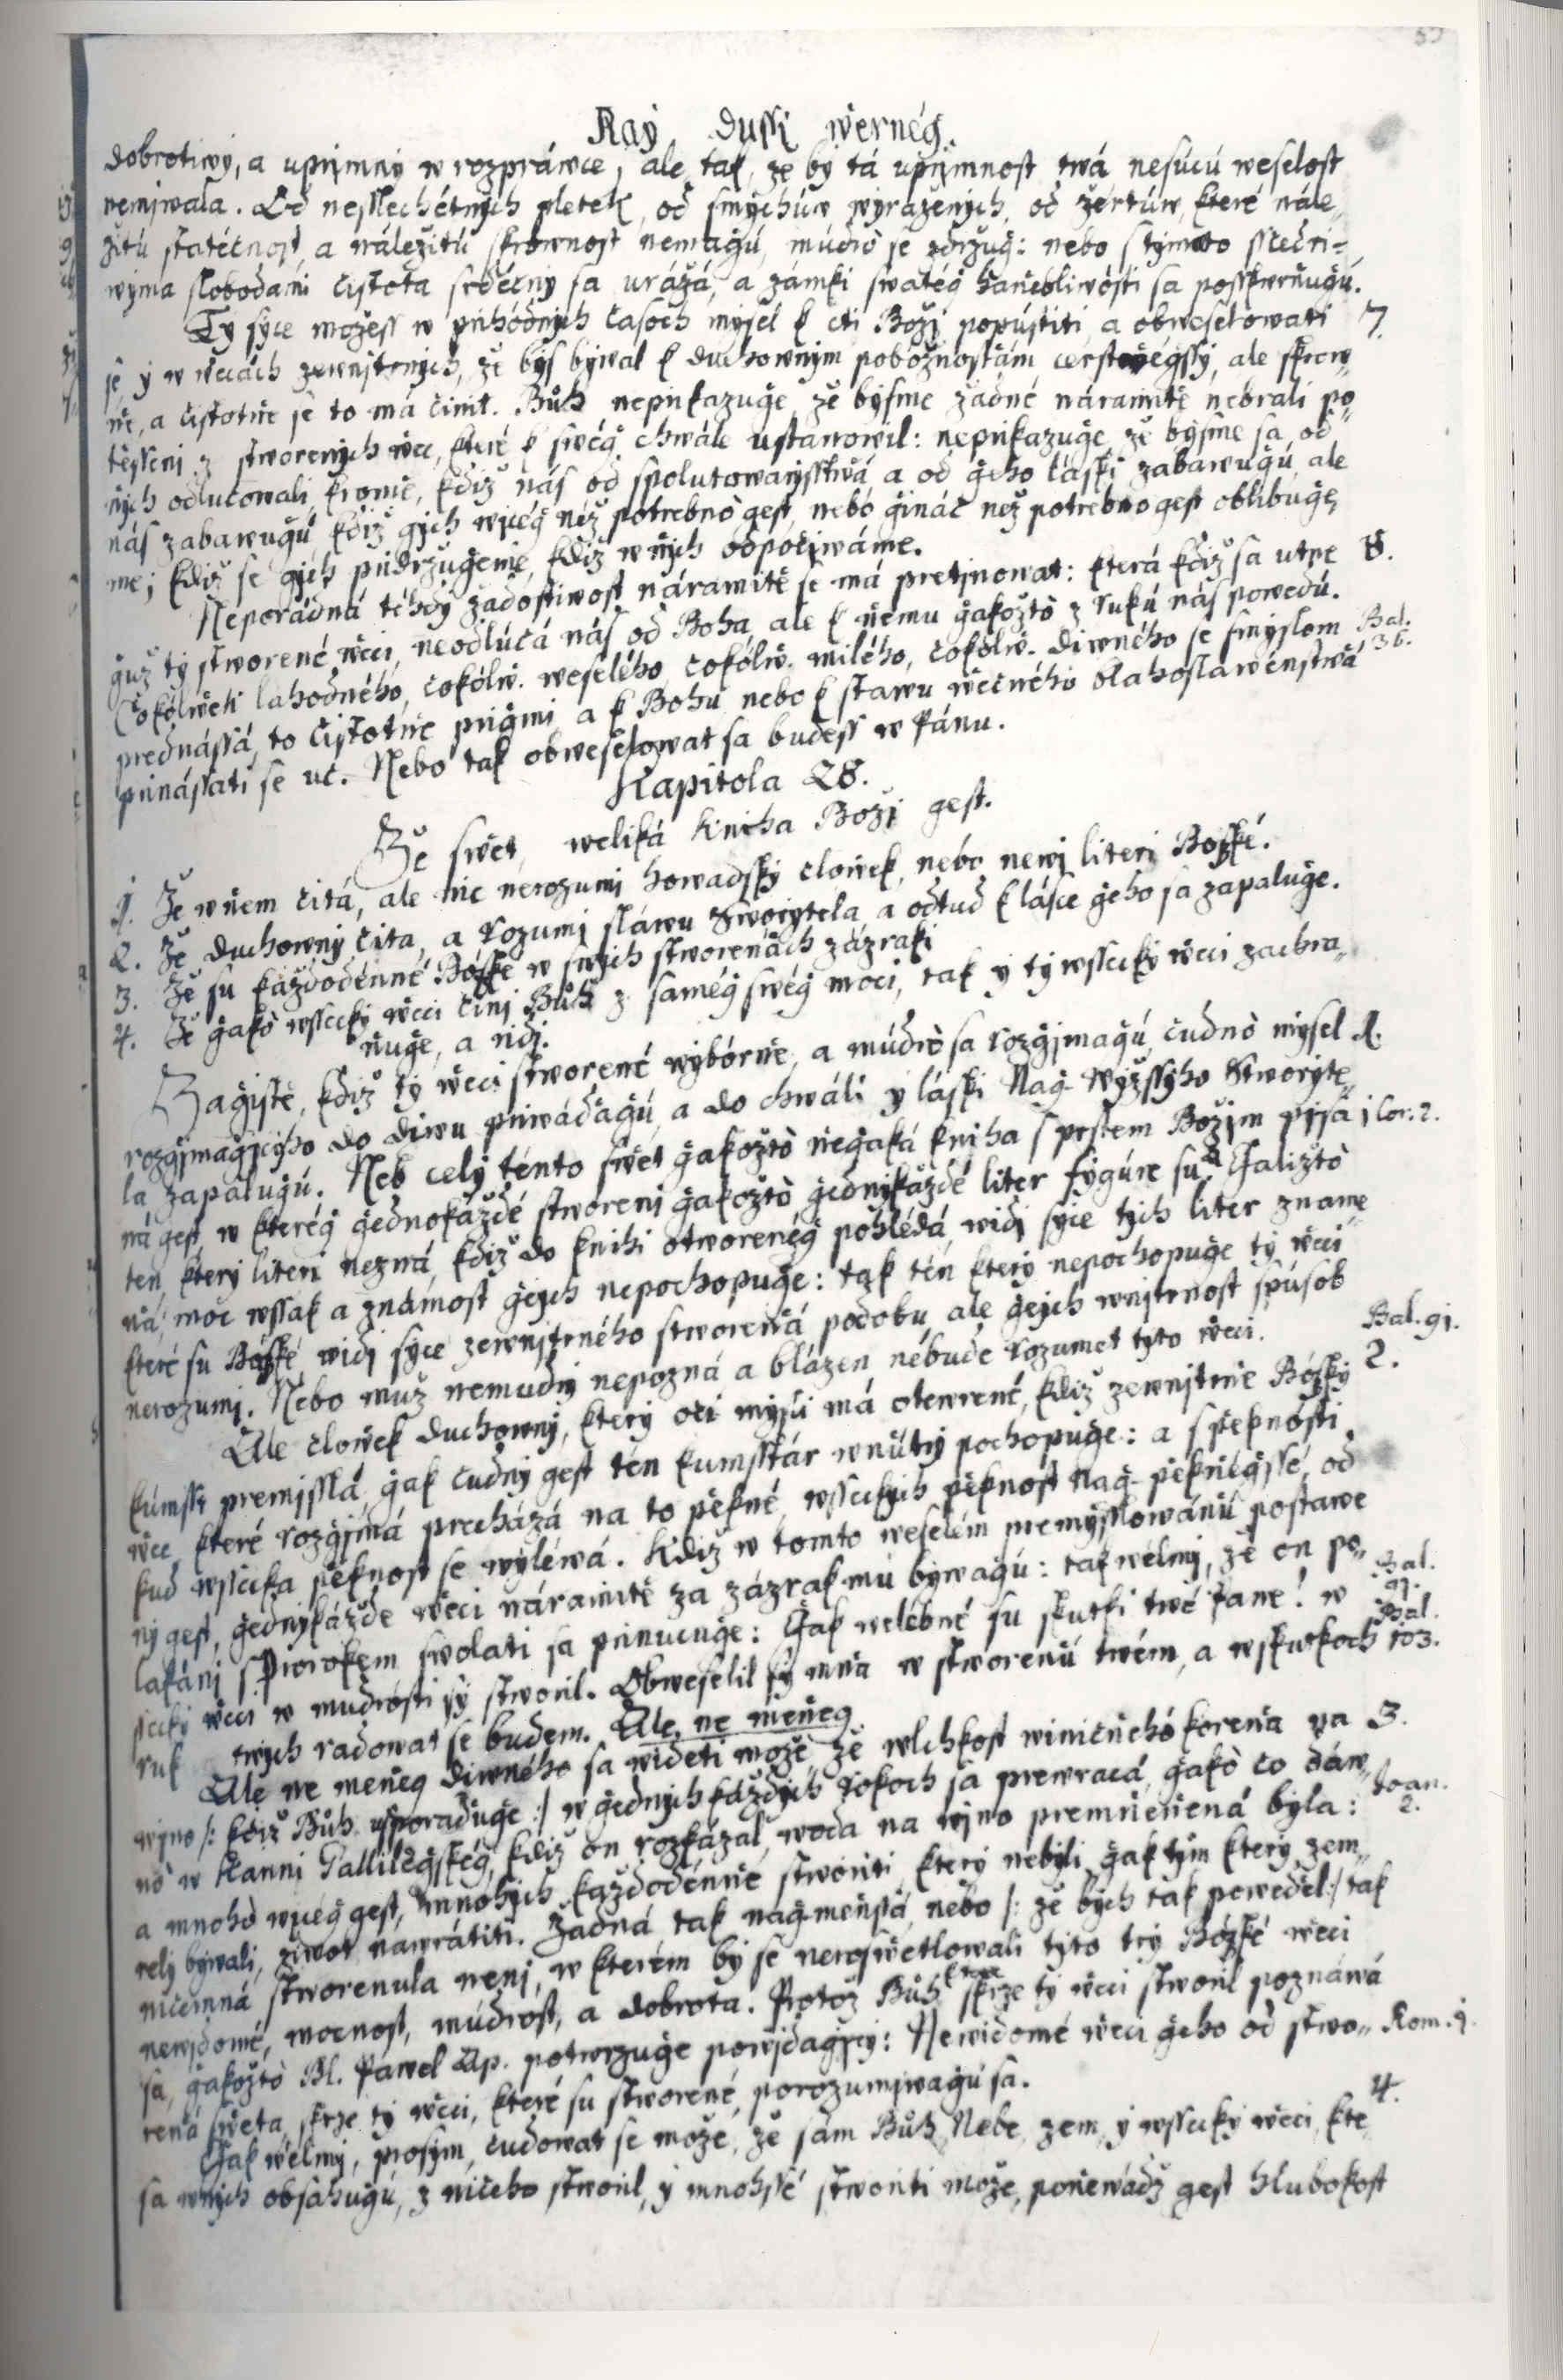 Rag dussi wernég.
dobrotiwy, a uprimny w rozpráwce, ale tak, že by tá uprimnost twá nesucú weselost
nemjwala. Od nesslechétnych pletek, od smychúw wyraženych, od žértúw, které nále„
žitú statéčnost, a náležitú skrownost nemagú, múdrò se zdržug: nebo s tymto sčedri„
wyma slobodami čistota srdéčny sa urážá, a zámki swatég hanebliwósti sa posskwrňugú.
Ty syce možess w prihódnych časoch mysel k cti Boži popústiti, a obweselowati 7.
se y w wěcách zewnitrnych, že bys býwal k duchownym pobožnostám čerstwégssy, ale skrow„
ne, a čistotne se to má činit. Bůh neprikazuge, že bysme žádné náramnitě nebrali po„
těsseni z stworenych wec, které k swég chwále ustanowil: neprikazuge, že bysme sa od
nych odlučowali, kromě, kdiž nás od spolutowarysstwá, a od geho láski zabawugú, ale
nás zabawugú kdiž gych wjcég néž potrebnò gest, nebó gináč než potrebno gest oblibuge„
me; kdiž se gich pridržugeme, kdiž w nych odpočjwáme.
Neporádná téhdy žádostiwost náramitě se má pretjnowat: která kdiž sa utne 8.
guž ty stworené wěci, neodlúčá nás od Boha, ale k němu gakožtò z rukú nás powedú.
Čokolwěk lahodného, čokólw. weselého, čokólw. milého, čokólw. diwného se smyslom Bal. 36.
prednássá, to čistotne prigmi, a k Bohu nebo k stawu wečného blahoslawénstwá
prinássati se uč. Nebo tak obweselowat sa budess w Pánu.
Kapitola 28.
Že swět, weliká kniha Boži gest.
1. Že w něm čitá, ale nic nerozumi howadsky člowěk, nebo newj literi Božské.
2. Že duchowny čita, a rozumj sláwu Stworytela, a odtud k lásce geho sa zapaluge.
3. Že su každodénné Božské w swych stworenách zázraki
4. Že gakò wssecky wěci činj Bůh z samég swég moci, tak y ty wssecky wěci zachra„
ňuge, a ridj.
Zagistě, kdiž ty wěci stworené wybórne, a múdrò sa rozgjmagú, čudnò mysel 1.
rozgjmagjcyho do diwu priwádagú, a do chwáli y láski Nag-wyžssyho Stworyte„
la zapalugú. Neb cely ténto swět gakožtò negaká kniha s prstem Božjm pjsa„ 1 Cor: 2.
ná gest, w kterég gednokáždé stworenj gakožtò gednykáždé liter fygúre su. Galižtò
ten, ktery literi nezná, kdiž do knihi otworenég pohlédá, widj syce tych liter zname„
ná, moc wssak a známost gegich nepochopuge: tak tén ktery nepochopuge ty wěci
které su Božské, widj syce zewnitrného stworená podobu, ale gegich wnjtrnost spúsob
nerozumj. Nebo muž nemudry nepozná a blázen nébude rozumet tyto wěci. Bal. 91.
Ale člowěk duchowny, ktery oči mysli má otewrené, kdiž zewnjtrne Božsky 2.
kúmsst premjsslá, gak čudny gest tén kumsstár wnútry pochopuge: a s peknósti
wěc, které rozgjmá prechází na to pěkné, wsseckych pěknost Nag-pěknégssé, od
kud wssecka pěknost se wyléwá. Kdiž w tomto weselém premysslowánú postawe„
ny gest, gednykážde wěci náramitě za zázrak mu bywagú: tak wélmj, že on po„ Bal.
lakáni s Prorokem zwolati sa prinucuge: Gak welébné su skutki twé Pane! w 91. Bal.
ssecky wěci w mudrósti sy stworil. Obweselil sy mňa w stworenú twém, a w skutkoch 103.
ruk twych radowat se budem. Ale, ne méňeg
Ale ne meňeg diwného sa widěti može, že wlchkost winičného koreňa na 3.
wjno |: kdiž Bůh usporaduge :| w gednychkáždych rokoch sa prewracá, gakò čo dáw„ Joan. 2.
nò w Kanni Gallilégskég, kdiž on rozkázal, woda na wjno premněňená byla:
a mnohò wjcég gest, mnohych každodénné stworiti, ktery nebyli, gak tym ktery zem„
relj bywali, žiwot nawrátiti. Žadná tak nag-menssá, nébo |: že bych tak powedel :| tak
ničemná stworenula nenj, w kterém by se neroswětlowali tyto try Božské wěci
newjdomé, mocnost, múdrost, a dobrota. Protož Bůh skrze ty wěci stworil poznáwá
sa, gakožtò Bl. Pawel Ap. potwrzuge powjdagjcy: Newidomé wěci geho od stwo„ Rom. 1.
reňá swěta, skrze ty wěci, které su stworené, porozumjwagú sa.
Gak wélmy, prosym, čudowat se može, že sám Bůh Nebe, zem, y wssecky wěci, kte 4.
sa w nych obsahugú, z ničeho stworil, y mnohssé stworiti može, poněwádž gest hlubokost